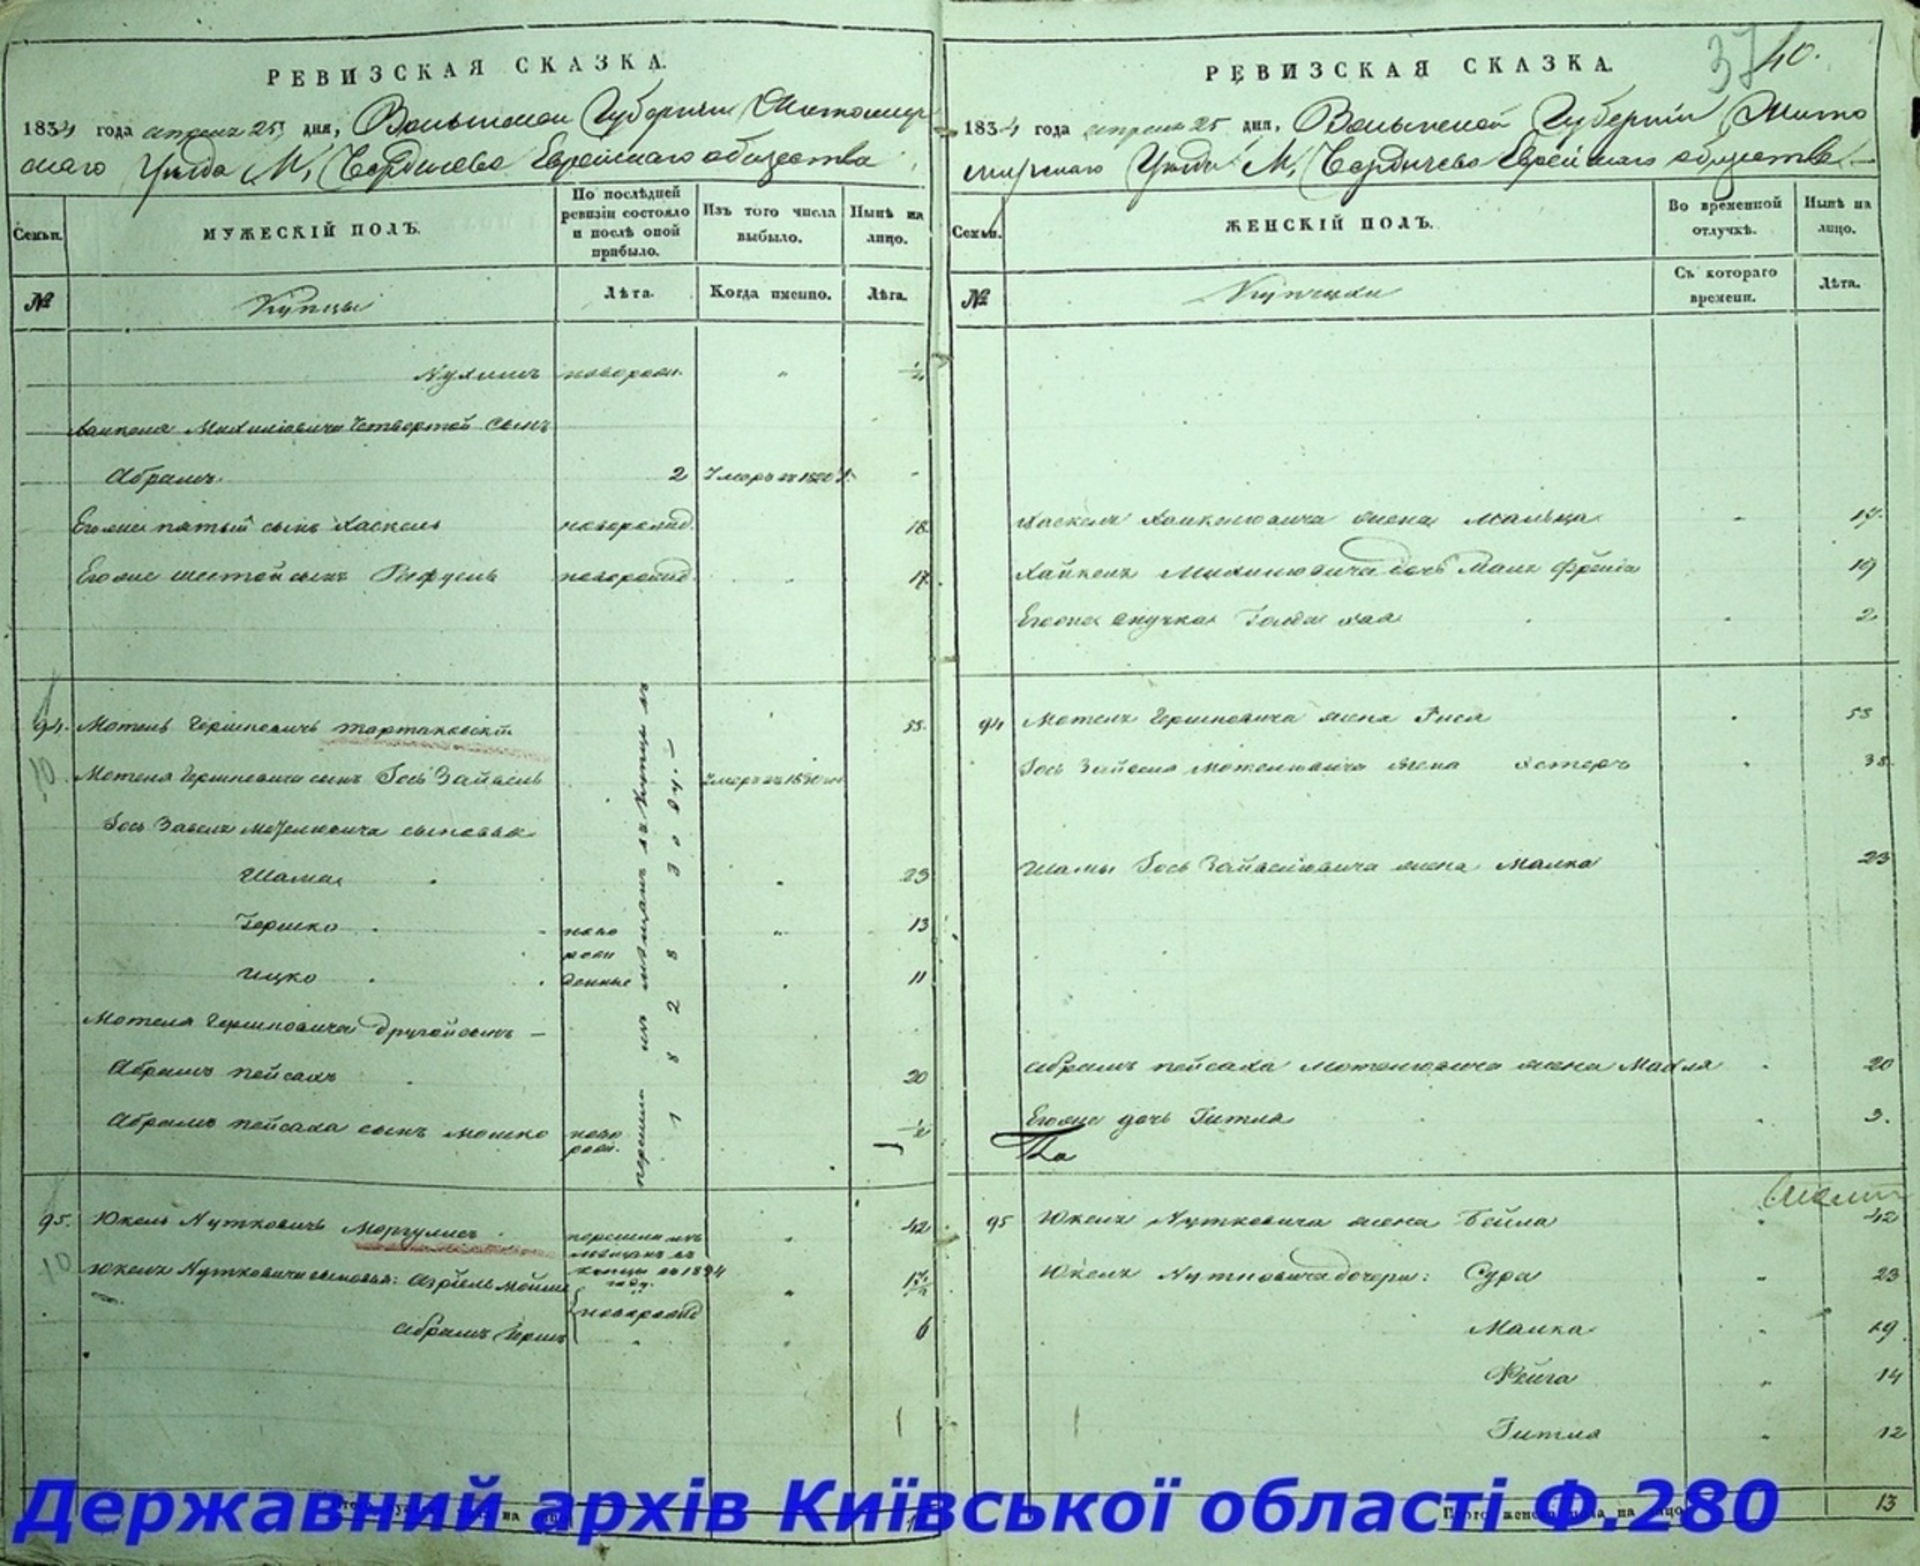 РЕВИЗСКАЯ СКАЗКА.
1834 года апреля 25 дня, Волынской Губернии Житомир
скаго Уезда М. Бердичева Еврейского общества
Семьи.
МУЖЕСКІЙ ПОЛЪ.
По послѣдней ревизіи состояло и послѣ оной прибыло.
Изъ того числа выбыло.
Нынѣ на лицо.
№
Купцы
Лѣта.
Когда именно.
Лѣта.
Нухимъ новорожд. 1/2
Хайкеля Михилiовича Четвертой сынъ
Абрамъ 2 Умеръ въ
Егоже пятый сынъ Хаскель новорожд. 18
Егоже шестой сынъ Рафуель новорожд. 17
94. Мотель Гершковичъ Тартаковскій 53.
10. Мотеля Гершковича сынъ Іось Зайвель Умеръ въ 1830
Іось Завеля Мотелiовича сыновья
Шама 23
Гершко ново 13
рож
Ицко денные 11
перешли изъ мещанъ въ купцы въ 1828 году.
Мотеля Гершковича другой сынъ —
Абрамъ Пейсахъ 20
Абрамъ Пейсаха сынъ Мошко ново 1/2
рож.
95. Юкель Нутковичъ Моргулисъ перешли изъ 42
10 мещанъ въ
Юкеля Нутковича сыновья: Азріель Мойше купцы въ 1834 году.
{новорожд
Абрамъ Гершъ 6
РЕВИЗСКАЯ СКАЗКА.
37 40.
1834 года апреля 25 дня, Волынской Губерніи Жито
мирскаго Уезда М. Бердичева Еврейскаго общества
Семьи.
ЖЕНСКІЙ ПОЛЪ.
Во временной отлучкѣ.
Нынѣ на лицо.
№
Купчихи
Съ котораго времени.
Лѣта.
Хаскеля Хайкелiовича жена Малка 17.
Хайкеля Михилiовича дочь Фрейда 19
Егоже внучка Голда Хая 2
94 Мотеля Гершковича жена Рися 53
Іось Зайвеля Мотелiовича жена Хестеръ 38
Шамы Іось Зайвелiовича жена Малка 23
Абрамъ Пейсаха Мотелiовича жена Махля 20
Егоже дочь Гитля 3.
95 Юкеля Нутковича жена Бейла 42
Юкеля Нутковича дочери: Сура 23
Малка 19.
Фейга 14
Гитля 12
Итого женска пола на лицо 13
Державний архів Київської області Ф.280